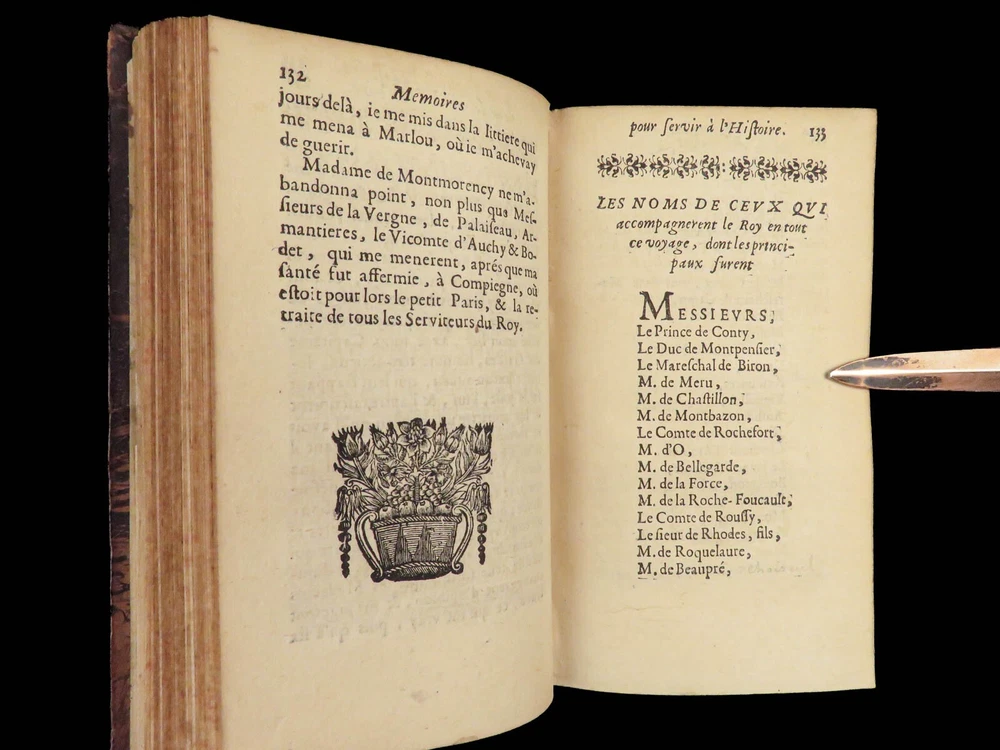 132
Memoires
jours delà, ie me mis dans la littiere qui
me mena à Marlou, où ie m'achevay
de guerir.
Madame de Montmorency ne m'a-
bandonna point, non plus que Mes-
sieurs de la Vergne, de Palaiseau, Ar-
mantieres, le Vicomte d'Auchy & Bo-
det, qui me menerent, aprés que ma
santé fut affermie, à Compiegne, où
estoit pour lors le petit Paris, & la re-
traite de tous les Serviteurs du Roy.
pour servir à l'Histoire. 133
LES NOMS DE CEVX QVI
accompagnerent le Roy en tout
ce voyage, dont les princi-
paux furent
MESSIEVRS,
Le Prince de Conty,
Le Duc de Montpensier,
Le Mareschal de Biron,
M. de Meru,
M. de Chastillon,
M. de Montbazon,
Le Comte de Rochefort,
M. d'O,
M. de Bellegarde,
M. de la Force,
M. de la Roche-Foucault,
Le Comte de Roussy,
Le sieur de Rhodes, fils,
M. de Roquelaure,
M. de Beaupré,